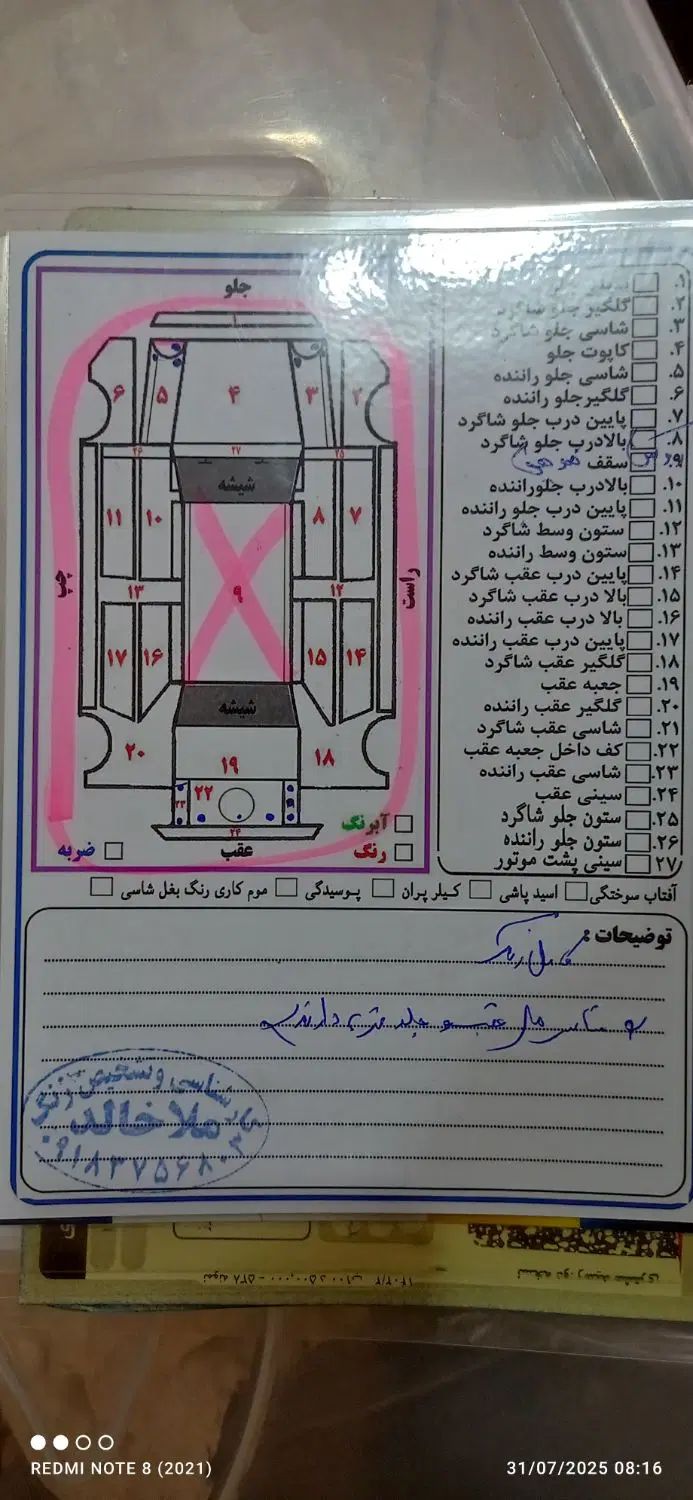 جلو
۱
۲
۳
۴
۵
۶
۲۶
۲۷
۲۵
شیشه
۱۱
۱۰
۸
۷
۹
چپ
راست
۱۳
۱۲
۱۷
۱۶
۱۵
۱۴
شیشه
۲۰
۱۹
۱۸
۲۳
۲۲
۲۴
عقب
آبرنگ
رنگ
ضربه
۱.
۲. گلگیر جلو شاگرد
۳. شاسی جلو شاگرد
۴. کاپوت جلو
۵. شاسی جلو راننده
۶. گلگیرجلو راننده
۷. پایین درب جلو شاگرد
۸. بالادرب جلو شاگرد
۹. سقف
۱۰. بالادرب جلوراننده
۱۱. پایین درب جلو راننده
۱۲. ستون وسط شاگرد
۱۳. ستون وسط راننده
۱۴. پایین درب عقب شاگرد
۱۵. بالا درب عقب شاگرد
۱۶. بالا درب عقب راننده
۱۷. پایین درب عقب راننده
۱۸. گلگیر عقب شاگرد
۱۹. جعبه عقب
۲۰. گلگیر عقب راننده
۲۱. شاسی عقب شاگرد
۲۲. کف داخل جعبه عقب
۲۳. شاسی عقب راننده
۲۴. سینی عقب
۲۵. ستون جلو شاگرد
۲۶. ستون جلو راننده
۲۷. سینی پشت موتور
آفتاب سوختگی اسید پاشی کیلر پران پوسیدگی موم کاری رنگ بغل شاسی
توضیحات :
رنگ
و عقب و جلو ضربه دارند
کارشناسی و تشخیص رنگ
ملاخالد
۰۹۱۸۳۷۵۶۸۰۳
نسخه دو: رسید مشتری
REDMI NOTE 8 (2021)
31/07/2025 08:16